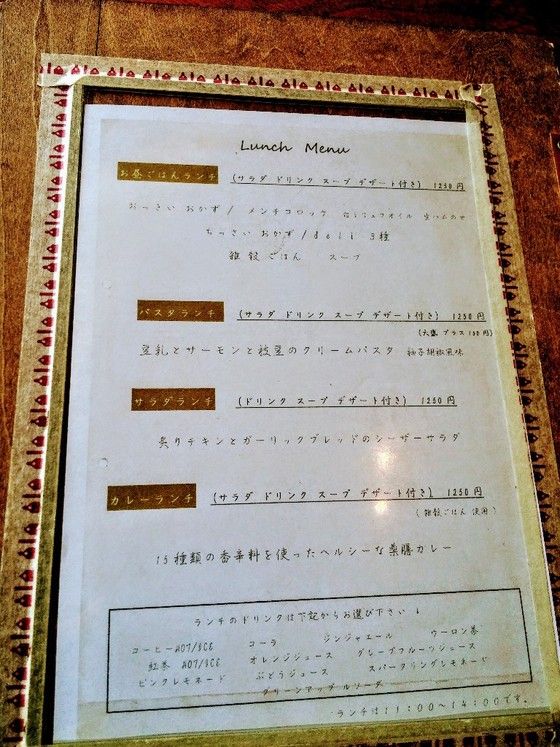 Lunch Menu
お昼ごはんランチ (サラダ ドリンク スープ デザート付き) 1250円
おっきい おかず / メンチコロッケ
ちっさい おかず / deli 3種
雑穀 ごはん スープ
パスタランチ (サラダ ドリンク スープ デザート付き) 1250円
(大盛 プラス 150円)
豆乳とサーモンと枝豆のクリームパスタ 柚子胡椒風味
サラダランチ (ドリンク スープ デザート付き) 1250円
炙りチキンとガーリックブレッドのシーザーサラダ
カレーランチ (サラダ ドリンク スープ デザート付き) 1250円
(雑穀ごはん 使用)
15種類の香辛料を使ったヘルシーな薬膳カレー
ランチのドリンクは下記からお選び下さい↓
コーヒーHOT/ICE コーラ ジンジャエール ウーロン茶
紅茶 HOT/ICE オレンジジュース グレープフルーツジュース
ピンクレモネード ぶどうジュース スパークリングレモネード
グリーンアップルソーダ
ランチは11:00～14:00です。